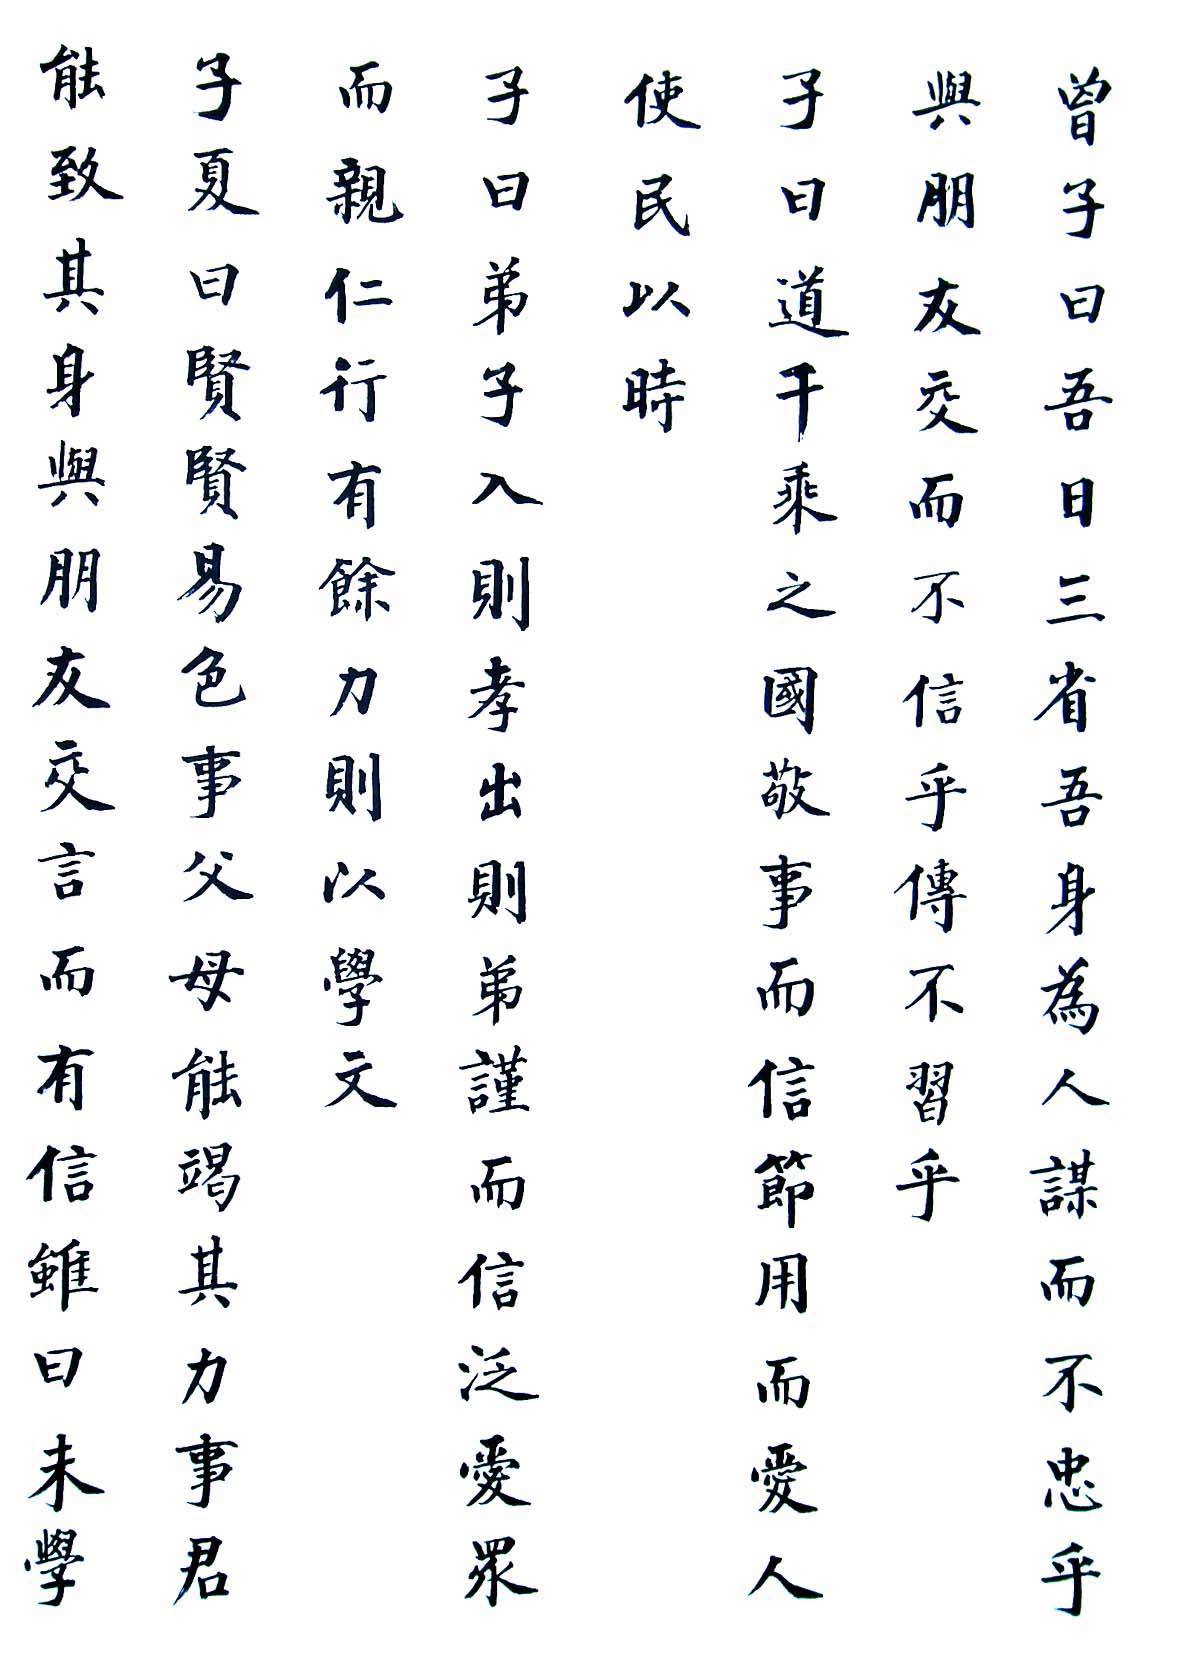 曾子曰吾日三省吾身為人謀而不忠乎
與朋友交而不信乎傳不習乎
子曰道千乘之國敬事而信節用而愛人
使民以時
子曰弟子入則孝出則弟謹而信泛愛眾
而親仁行有餘力則以學文
子夏曰賢賢易色事父母能竭其力事君
能致其身與朋友交言而有信雖曰未學